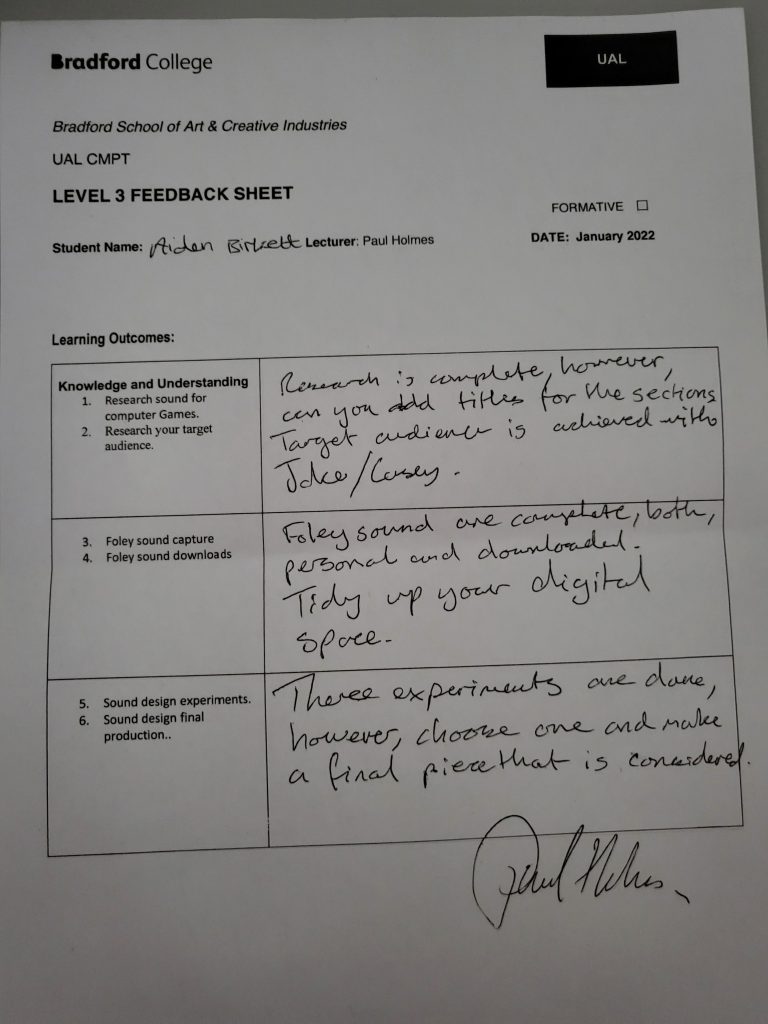 Bradford College
UAL
Bradford School of Art & Creative Industries
UAL CMPT
LEVEL 3 FEEDBACK SHEET
FORMATIVE ☐
Student Name: Aiden Birkett Lecturer: Paul Holmes
DATE: January 2022
Learning Outcomes:
Knowledge and Understanding
1. Research sound for
computer Games.
2. Research your target
audience.
Research is complete, however,
can you add titles for the sections
Target audience is achieved with
Jake/Casey.
3. Foley sound capture
4. Foley sound downloads
Foley sound are complete, both,
personal and downloaded.
Tidy up your digital
space.
5. Sound design experiments.
6. Sound design final
production..
Three experiments are done,
however, choose one and make
a final piece that is considered.
Paul Holmes